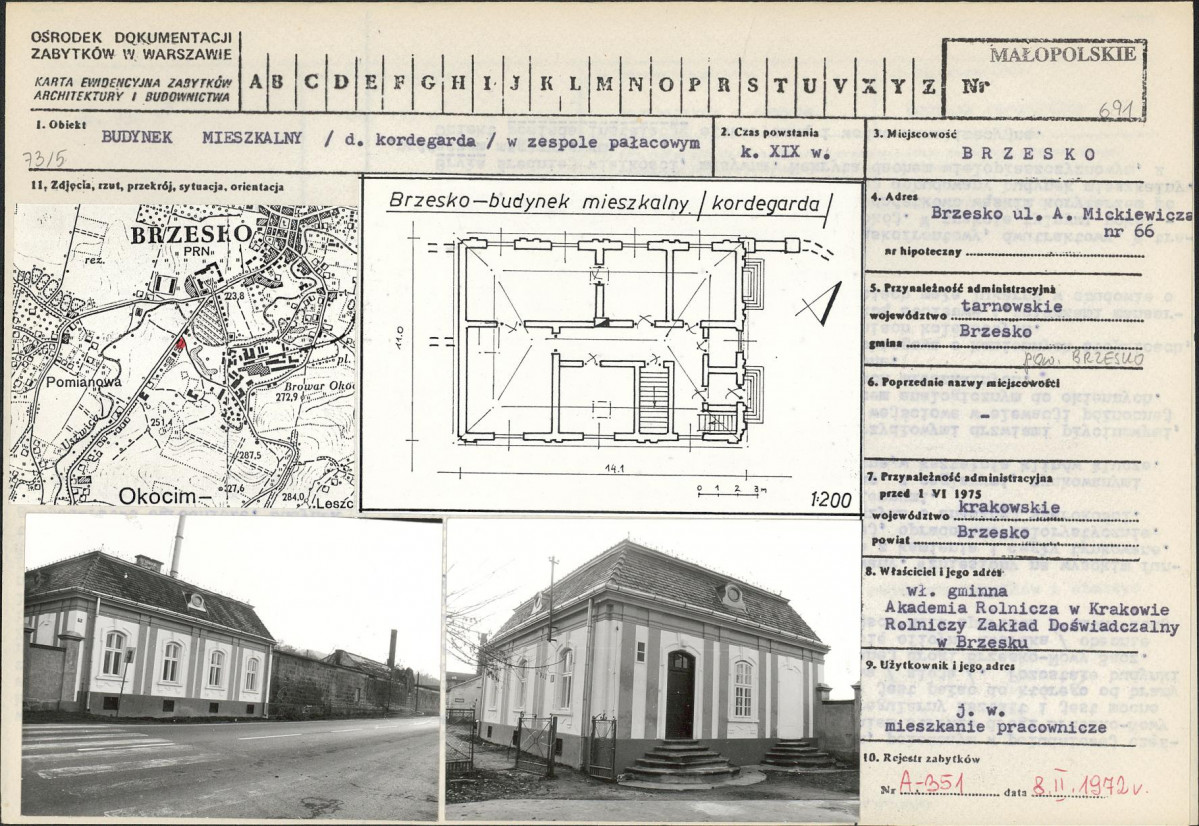 OŚRODEK DOKUMENTACJI
ZABYTKÓW W WARSZAWIE
KARTA EWIDENCYJNA ZABYTKÓW
ARCHITEKTURY I BUDOWNICTWA
A B C D E F G H I J K L M N O P R S T U V X Y Z
MAŁOPOLSKIE
Nr
691
1. Obiekt
BUDYNEK MIESZKALNY / d. kordegarda / w zespole pałacowym
7315
2. Czas powstania
k. XIX w.
3. Miejscowość
BRZESKO
11, Zdjęcia, rzut, przekrój, sytuacja, orientacja
BRZESKO
PRN
rez.
223,8
pl.
Pomianowa
Browar Oko
272,9
Uszwica
251,4
287,5
227,6
284,0
Okocim—
Leszc
Brzesko—budynek mieszkalny /kordegarda/
11.0
14.1
0 1 2 3m
1:200
4. Adres
Brzesko ul. A. Mickiewicza
nr 66
nr hipoteczny
5. Przynależność administracyjna
województwo tarnowskie
gmina Brzesko
pow. BRZESKO
6. Poprzednie nazwy miejscowości
-
7. Przynależność administracyjna
przed 1 VI 1975
województwo krakowskie
powiat Brzesko
8. Właściciel i jego adres
wł. gminna
Akademia Rolnicza w Krakowie
Rolniczy Zakład Doświadczalny
w Brzesku
9. Użytkownik i jego adres
j. w.
mieszkanie pracownicze
10. Rejestr zabytków
Nr A-351 data 8.II.1972r.